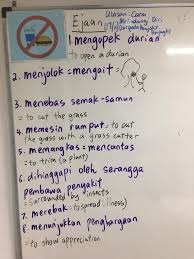 Ejaan
Ulasan: Cara
1. mengopek durian
to open a durian
2. menjolok = mengait =
3. menebas semak-samun
= to cut the grass
4. memesin rumput = to cut
the grass with a grass carter
5. memangkas = mencantas
= to trim (a plant)
6. dihinggapi oleh serangga
pembawa penyakit
= surrounded by insects
7. merebak = to spread (illness)
8. menunjukkan penghargaan
= to show appreciation